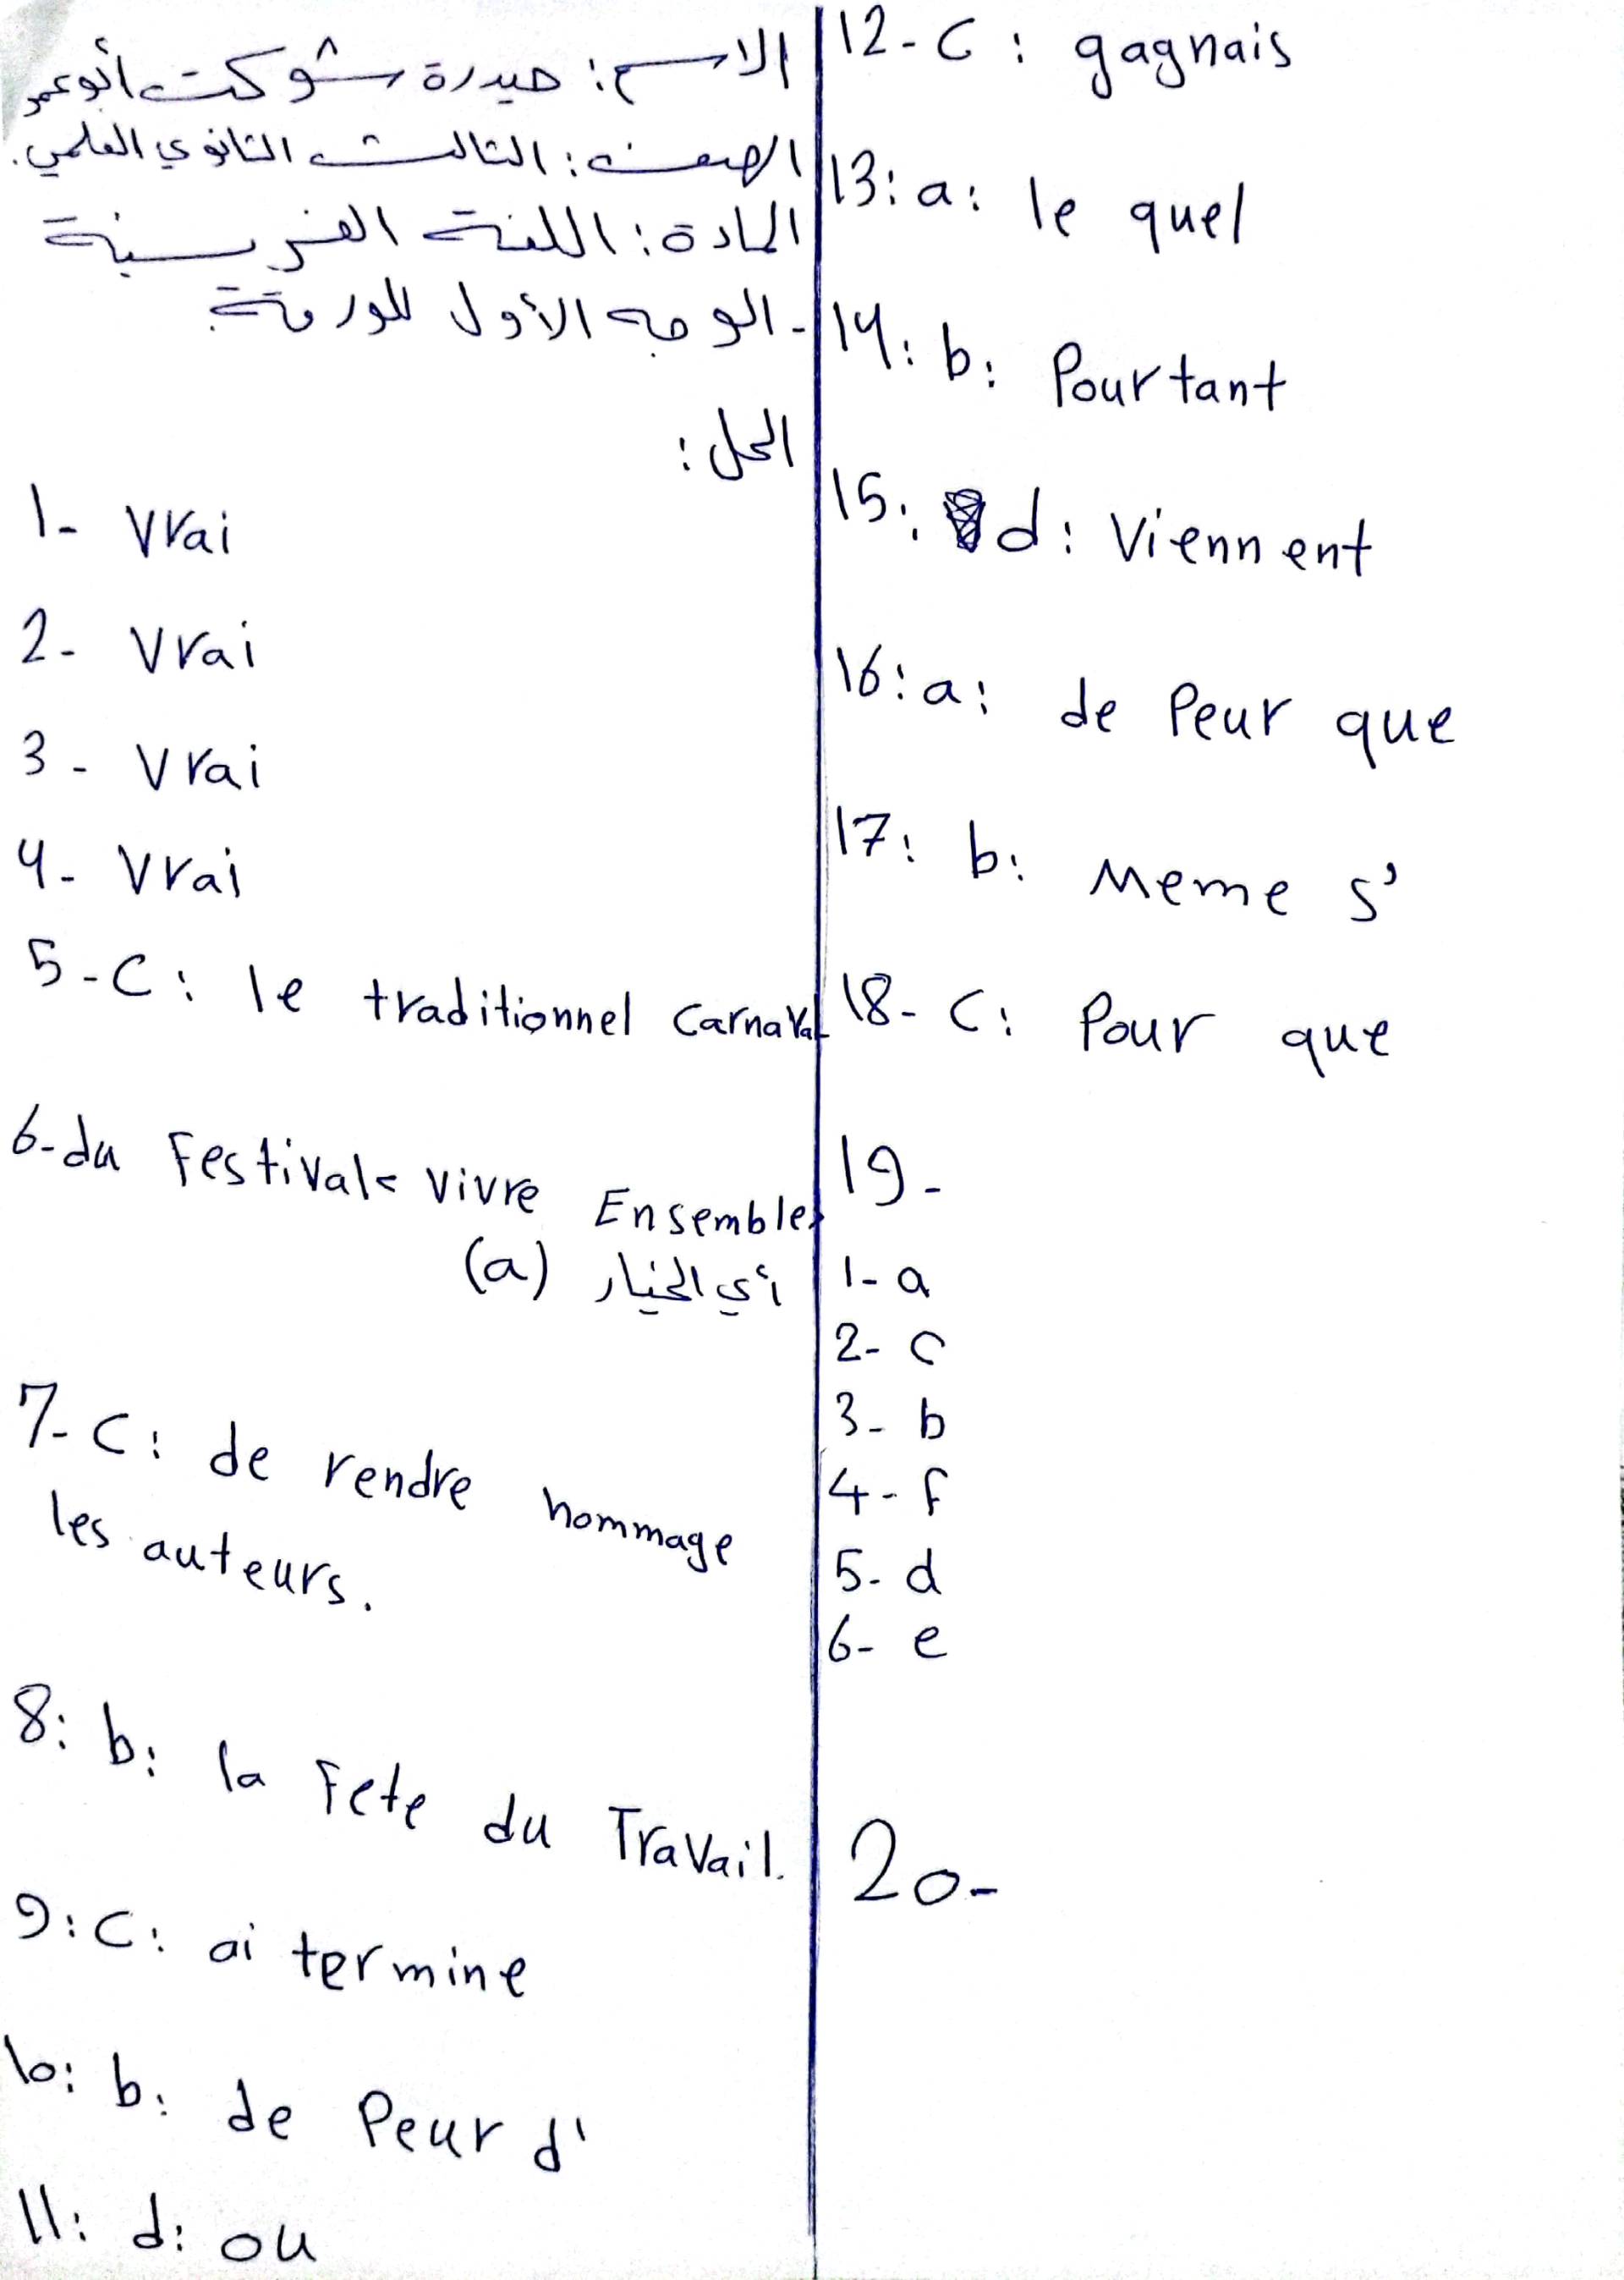 الاسم: حيدرة شوكت أبو عمر
الصف: الثالث الثانوي العلمي.
المادة: اللغة الفرنسية
- الوجه الأول للورقة.
الحل:
1- Vrai
2- Vrai
3- Vrai
4- Vrai
5-C: le traditionnel Carnaval
6-du Festivale vivre Ensemble
أي الخيار (a)
7-C: de rendre hommage
les auteurs.
8: b: la Fete du Travail.
9: C: ai termine
10: b: de Peur d'
11: d: ou
12-C: gagnais
13: a: le quel
14: b: Pourtant
15: d: Viennent
16: a: de Peur que
17: b: Meme s'
18- C: Pour que
19-
1- a
2- c
3- b
4- f
5- d
6- e
20-